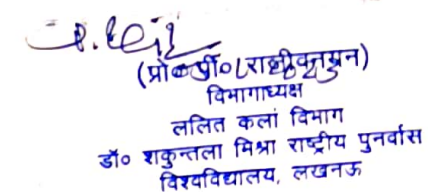 (प्रो० पी० राजीवनयन)
विभागाध्यक्ष
ललित कला विभाग
डॉ० शकुन्तला मिश्रा राष्ट्रीय पुनर्वास
विश्वविद्यालय, लखनऊ